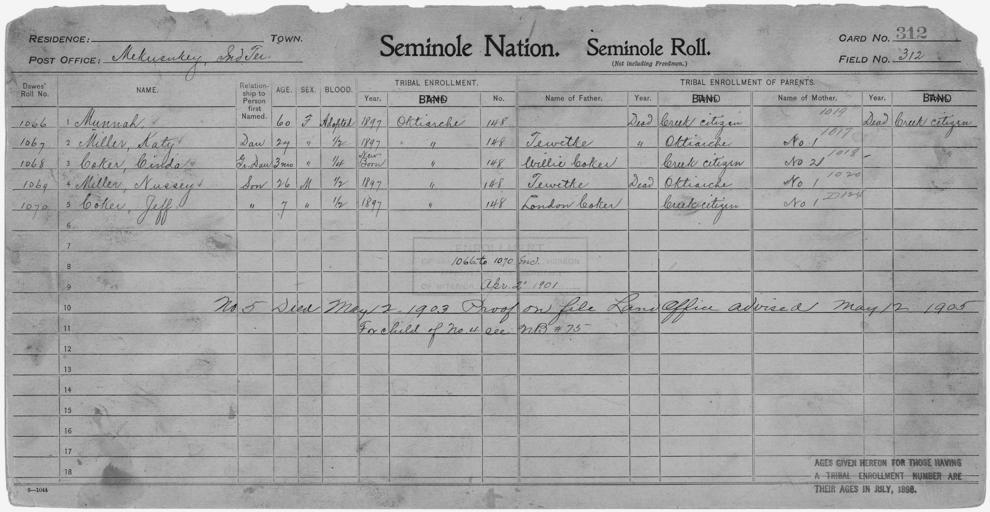 RESIDENCE: TOWN. Seminole Nation. Seminole Roll. CARD NO. 312
POST OFFICE: Mekusukey, Ind Ter. (Not including Freedmen.) FIELD NO. 312
TRIBAL ENROLLMENT. TRIBAL ENROLLMENT OF PARENTS.
Dawes' Roll No. NAME. Relationship to Person first Named. AGE. SEX. BLOOD. Year. BAND No. Name of Father. Year. BAND Name of Mother. Year. BAND
1066 1 Munnah 60 F Adopted 1897 Oktiarche 148 Dead Creek citizen 1019 Dead Creek citizen
1067 2 Miller, Katy Dau 27 " 1/2 1897 " 148 Tewithe " Oktiarche No 1 1017
1068 3 Coker, Cinda Gr. Dau 3mo " 1/4 New Born " 148 Willie Coker Creek citizen No 2 1018
1069 4 Miller, Nussey Son 26 M 1/2 1897 " 148 Tewithe Dead Oktiarche No 1 1020
1070 5 Coker, Jeff " 7 " 1/2 1897 " 148 London Coker Creek citizen No 1
6
7 ENROLLMENT
8 1066 to 1070 Incl. HEREON
9 OF INTERIOR Apr. 2 1901
10 No 5 Died May 2 1903 Proof on file Land Office advised May 12 1905
11 For child of No 4 see NB #75
12
13
14
15
16
17
18
AGES GIVEN HEREON FOR THOSE HAVING
A TRIBAL ENROLLMENT NUMBER ARE
THEIR AGES IN JULY, 1898.
6—1044